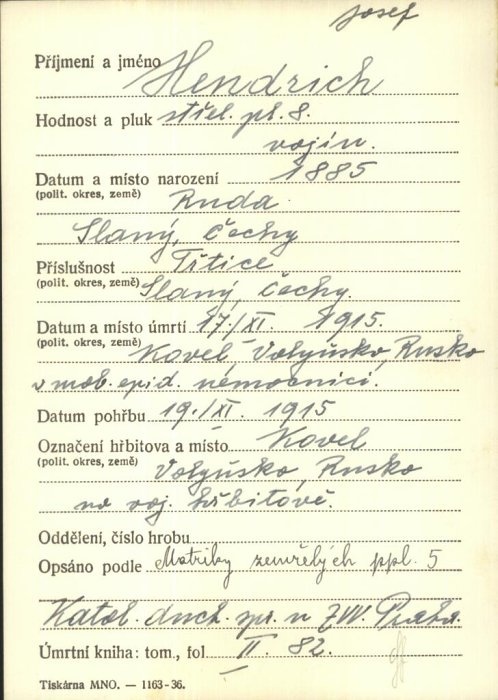 Josef
Příjmení a jméno Hendrich
Hodnost a pluk střel. pl. 8.
vojín.
Datum a místo narození 1885
(polit. okres, země) Ruda
Slaný, Čechy
Příslušnost Třtice
(polit. okres, země) Slaný, Čechy.
Datum a místo úmrtí 17./XI. 1915.
(polit. okres, země) Kovel, Volyňsko, Rusko
v mob. epid. nemocnici.
Datum pohřbu 19./XI. 1915
Označení hřbitova a místo Kovel
(polit. okres, země) Volyňsko, Rusko
na voj. hřbitově.
Oddělení, číslo hrobu
Opsáno podle Matriky zemřelých ppl. 5
Katol. duch. spr. u ZVV. Praha.
Úmrtní kniha: tom., fol. II. 82.
Tiskárna MNO. — 1163-36.